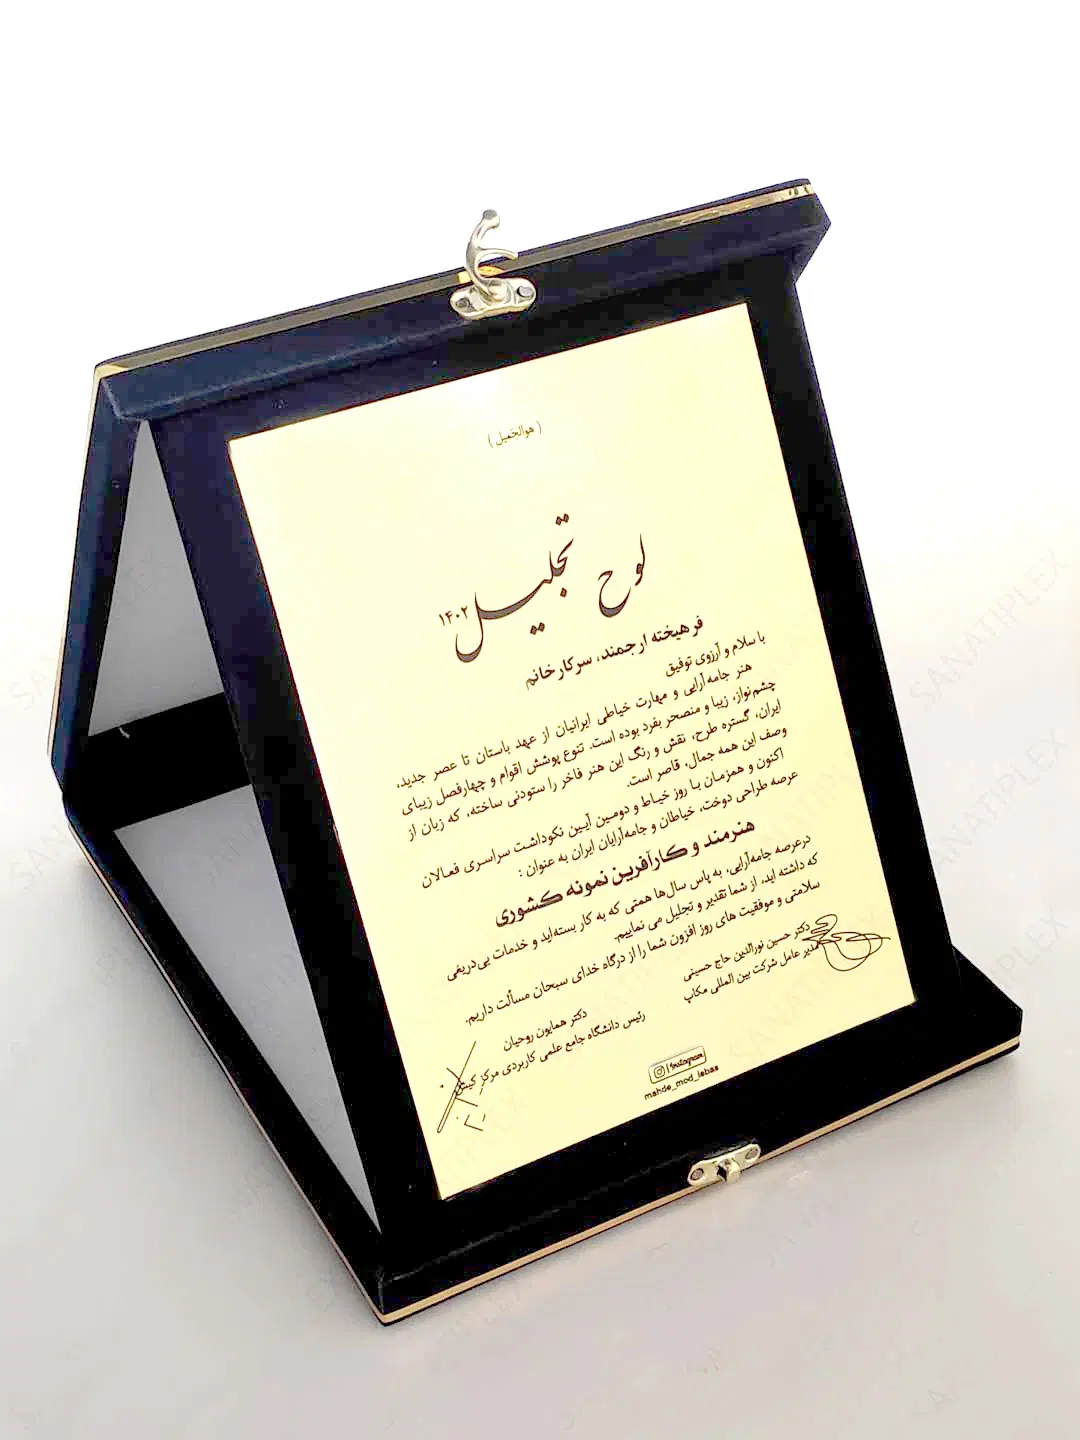 ( هوالجمیل )
لوح تجلیل ۱۴۰۲
فرهیخته ارجمند، سرکار خانم
با سلام و آرزوی توفیق
هنر جامه‌آرایی و مهارت خیاطی ایرانیان از عهد باستان تا عصر جدید،
چشم‌نواز، زیبا و منحصر بفرد بوده است. تنوع پوشش اقوام و چهارفصل زیبای
ایران، گستره طرح، نقش و رنگ این هنر فاخر را ستودنی ساخته، که زبان از
وصف این همه جمال، قاصر است.
اکنون و همزمان با روز خیاط و دومین آیین نکوداشت سراسری فعالان
عرصه طراحی دوخت، خیاطان و جامه‌آرایان ایران به عنوان :
هنرمند و کارآفرین نمونه کشوری
درعرصه جامه‌آرایی، به پاس سال‌ها همتی که به کار بسته‌اید و خدمات بی‌دریغی
که داشته اید، از شما تقدیر و تجلیل می نماییم.
سلامتی و موفقیت های روز افزون شما را از درگاه خدای سبحان مسألت داریم.
دکتر حسین نورالدین حاج حسینی
مدیر عامل شرکت بین المللی مکاپ
دکتر همایون روحیان
رئیس دانشگاه جامع علمی کاربردی مرکز کیش
Instagram
mahde_mod_lebas
SANATIPLEX